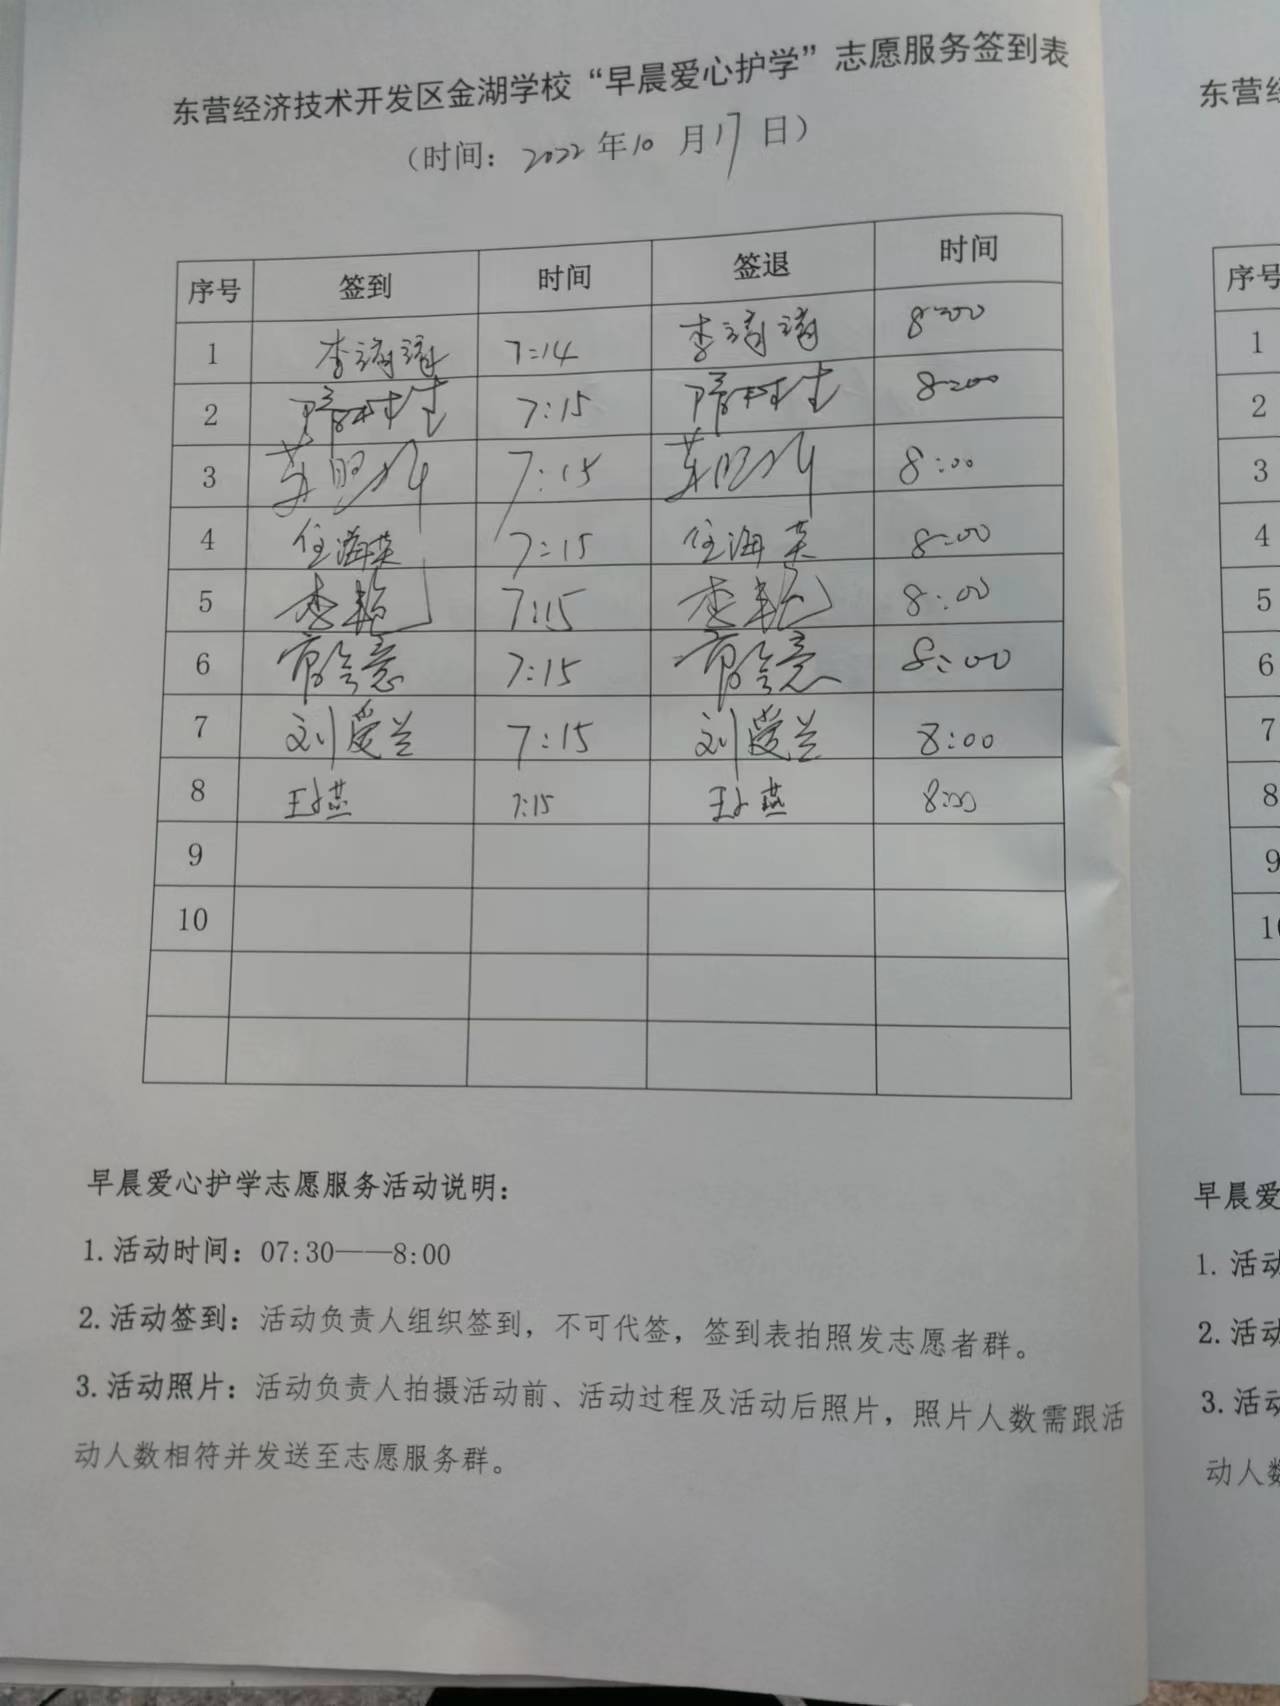 东营经济技术开发区金湖学校“早晨爱心护学”志愿服务签到表
（时间：2022年10月17日）
序号 签到 时间 签退 时间
1 李 7:14 李 8:00
2 7:15 8:00
3 7:15 8:00
4 任海英 7:15 任海英 8:00
5 李艳 7:15 李艳 8:00
6 7:15 8:00
7 刘爱兰 7:15 刘爱兰 8:00
8 王燕 7:15 王燕 8:00
9
10
早晨爱心护学志愿服务活动说明：
1.活动时间：07:30——8:00
2.活动签到：活动负责人组织签到，不可代签，签到表拍照发志愿者群。
3.活动照片：活动负责人拍摄活动前、活动过程及活动后照片，照片人数需跟活
动人数相符并发送至志愿服务群。
东营
序号
1
2
3
4
5
6
7
8
9
早晨爱
1.活动
2.活动
3.活动
动人数